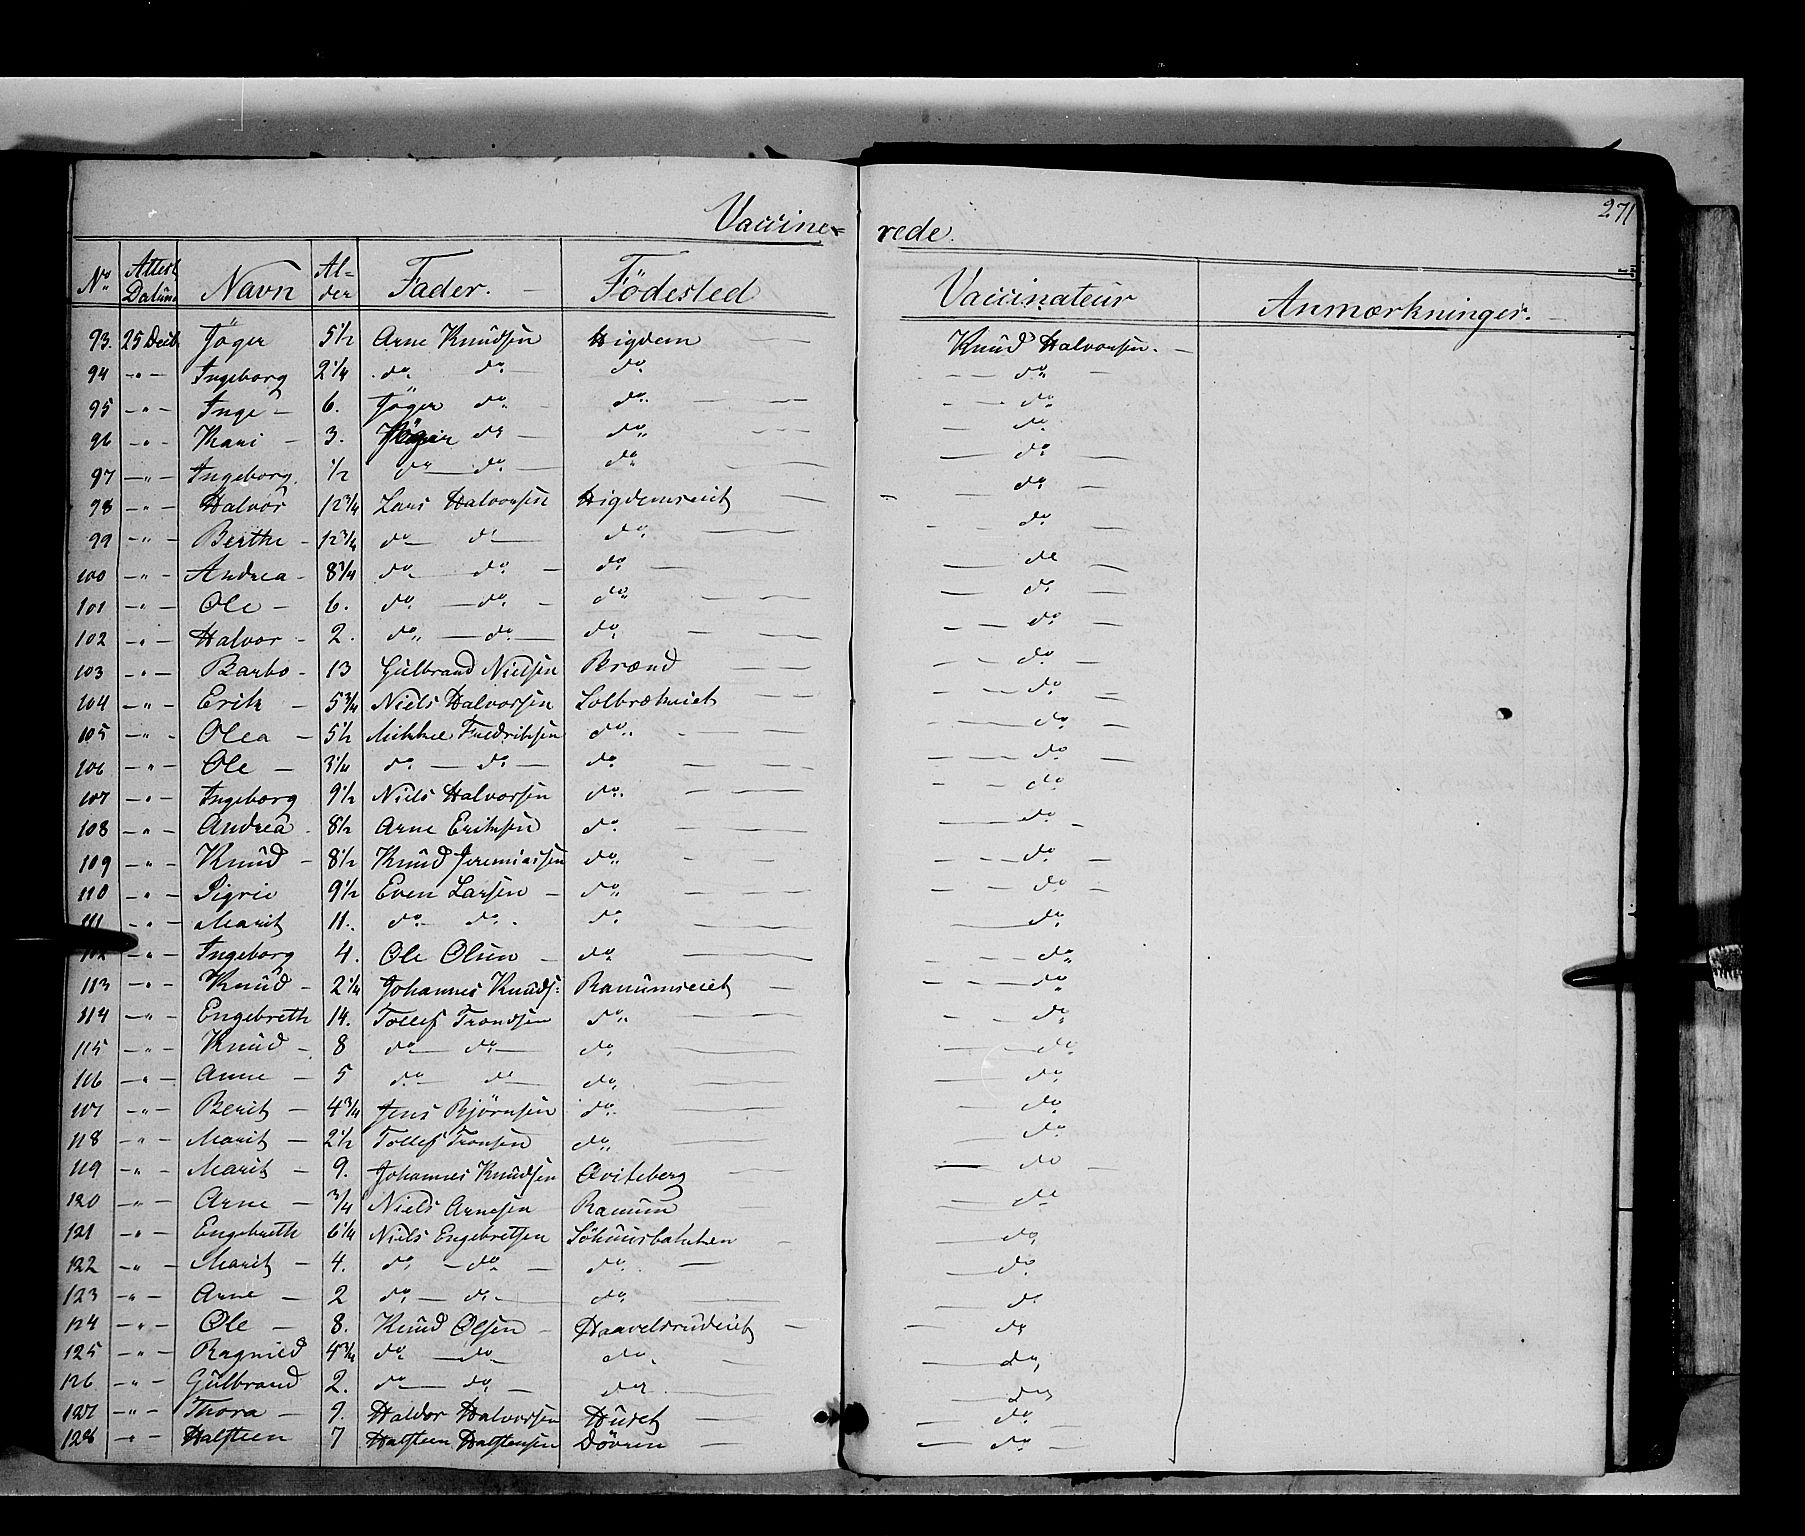 271
Vaccine- rede.
No | Attest Datum | Navn | Al-der | Fader. | Födested | Vaccinateur | Anmærkninger.
93. | 25 Decb | Jöger | 5½ | Arne Knudsen | Higdem | Knud Halvorsen.
94 | " | Ingeborg | 2¼ | do do | do | do
95 | " | Inge | 6. | Jöger do | do | do
96 | " | Kari | 3. | Jöger do | do | do
97 | " | Ingeborg. | ½ | do do | do | do
98 | " | Halvor | 12¾ | Lars Halvorsen | Higdemseiet | do
99 | " | Berthe | 12¾ | do do | do | do
100 | " | Andrea | 8¾ | do do | do | do
101 | " | Ole | 6. | do do | do | do
102 | " | Halvor | 2. | do do | do | do
103 | " | Barbo | 13 | Gulbrand Nielsen | Brænd | do
104 | " | Erik | 5¾ | Niels Halvorsen | Solbrækeiet | do
105 | " | Olea | 5½ | Mikkel Fredriksen | do | do
106 | " | Ole | 3¼ | do do | do | do
107 | " | Ingeborg | 9½ | Niels Halvorsen | do | do
108 | " | Andrea | 8½ | Arne Eriksen | do | do
109 | " | Knud | 8½ | Knud Jeremiassen | do | do
110 | " | Sigrie | 9½ | Even Larsen | do | do
111 | " | Marit | 11. | do do | do | do
112 | " | Ingeborg | 4. | Ole Olsen | do | do
113 | " | Knud | 2¼ | Johannes Knuds: | Ranumseiet | do
114 | " | Engebreth | 14. | Tollef Trondsen | do | do
115 | " | Knud | 8 | do do | do | do
116 | " | Anne | 5 | do do | do | do
117 | " | Berit | 4¾ | Jens Bjørnsen | do | do
118 | " | Marit | 2½ | Tollef Tronsen | do | do
119 | " | Marit | 9. | Johannes Knudsen | Qviteberg | do
120 | " | Arne | ¾ | Niels Arnesen | Ranum | do
121 | " | Engebreth | 6¼ | Niels Engebretsen | Söhuusbakken | do
122 | " | Marit | 4. | do do | do | do
123 | " | Arne | 2 | do do | do | do
124 | " | Ole | 8. | Knud Olsen | Haavelsrudeiet | do
125 | " | Ragnild | 4¾ | do do | do | do
126 | " | Gulbrand | 2. | do do | do | do
127 | " | Thora | 9. | Haldor Halvorsen | Huset | do
128 | " | Halsteen | 7 | Halsteen Halstensen | Dövren | do